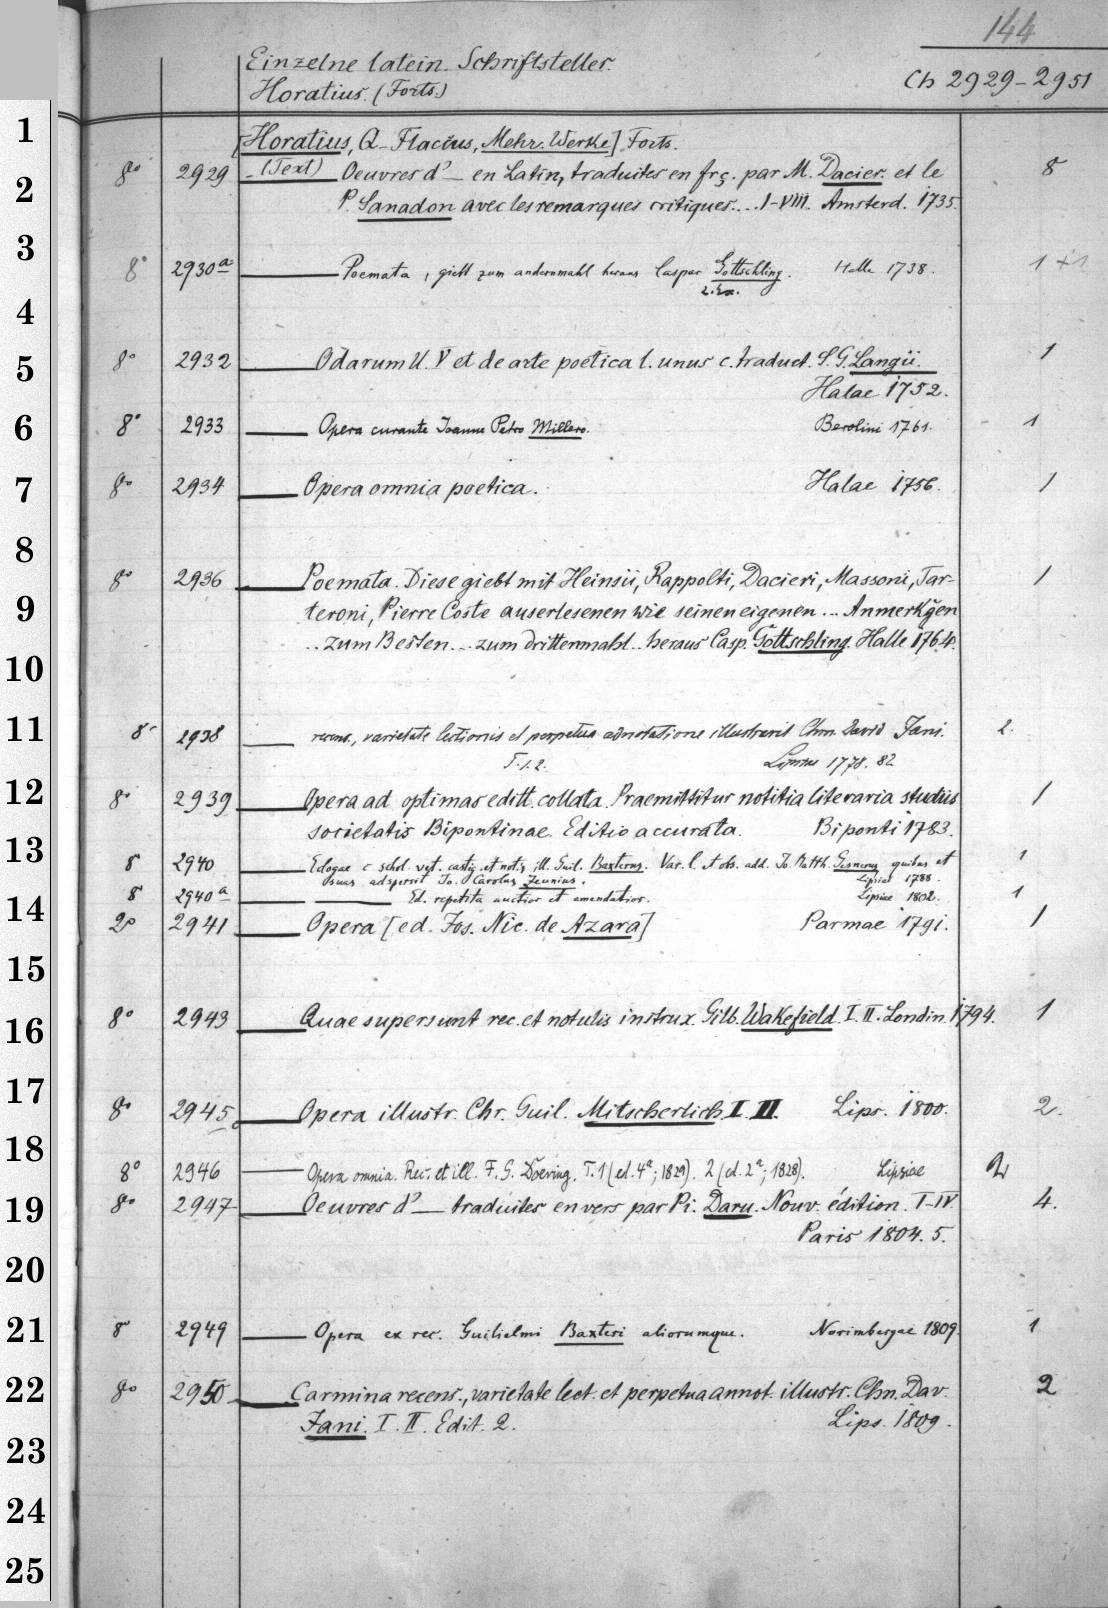 144
Einzelne latein. Schriftsteller.
Horatius. (Forts.)
Ch 2929-2951
1
[Horatius, Q. Flacius, Mehr. Werke] Forts.
2
8° 2929 - (Text) Oeuvres d'— en Latin, traduites en frç. par M. Dacier. et le 8
P. Sanadon avec les remarques critiques... I-VIII. Amsterd. 1735.
3
8° 2930a — Poemata, giebt zum andernmahl heraus Caspar Gottschling. Halle 1738. 1 +1
2. Ex.
4
5
8° 2932 — Odarum ll. V et de arte poëtica l. unus c. traduct. S. G. Langii. 1
Halae 1752.
6
8° 2933 — Opera curante Joanne Petro Millero. Berolini 1761. 1
7
8° 2934 — Opera omnia poetica. Halae 1756. 1
8
8° 2936 — Poemata. Diese giebt mit Heinsii, Rappolti, Dacieri, Massoni, Tar- 1
9
teroni, Pierre Coste auserlesenen wie seinen eigenen ... Anmerkgen
.. zum Besten ... zum drittenmahl .. heraus Casp. Gottschling. Halle 1764.
10
11
8° 2938 — recens., varietate lectionis et perpetua adnotatione illustravit Chrn. David Jani. 2.
T. 1. 2. Lipsiae 1778. 82
12
8° 2939 — Opera ad optimas editt. collata. Praemittitur notitia literaria studiis 1
societatis Bipontinae. Editio accurata. Biponti 1783.
13
8° 2940 — Eclogae c schol. vet. castig. et notis ill. Guil. Baxterus. Var. l. et obs. add. Jo. Matth. Gesnerus quibus et 1
suas adspersit Jo. Carolus Zeunius. Lipsiae 1788.
8° 2940a — — Ed. repetita auctior et emendatior. Lipsiae 1802. 1
14
2° 2941 — Opera [ed. Jos. Nic. de Azara] Parmae 1791. 1
15
16
8° 2943 — Quae supersunt rec. et notulis instrux. Gilb. Wakefield. I. II. Londin. 1794. 1
17
8° 2945 — Opera illustr. Chr. Guil. Mitscherlich. I II. Lips. 1800. 2.
18
8° 2946 — Opera omnia. Rec. et ill. F. G. Doering. T. 1 (ed. 4a; 1829). 2 (ed. 2a; 1828). Lipsiae 2
19
8° 2947 — Oeuvres d'— traduites en vers par Pi. Daru. Nouv. édition. I-IV. 4.
Paris 1804. 5.
20
21
8° 2949 — Opera ex rec. Guilielmi Baxteri aliorumque. Norimbergae 1809. 1
22
8° 2950 — Carmina recens., varietate lect. et perpetua annot. illustr. Chn. Dav. 2
Jani. I. II. Edit. 2. Lips. 1809.
23
24
25